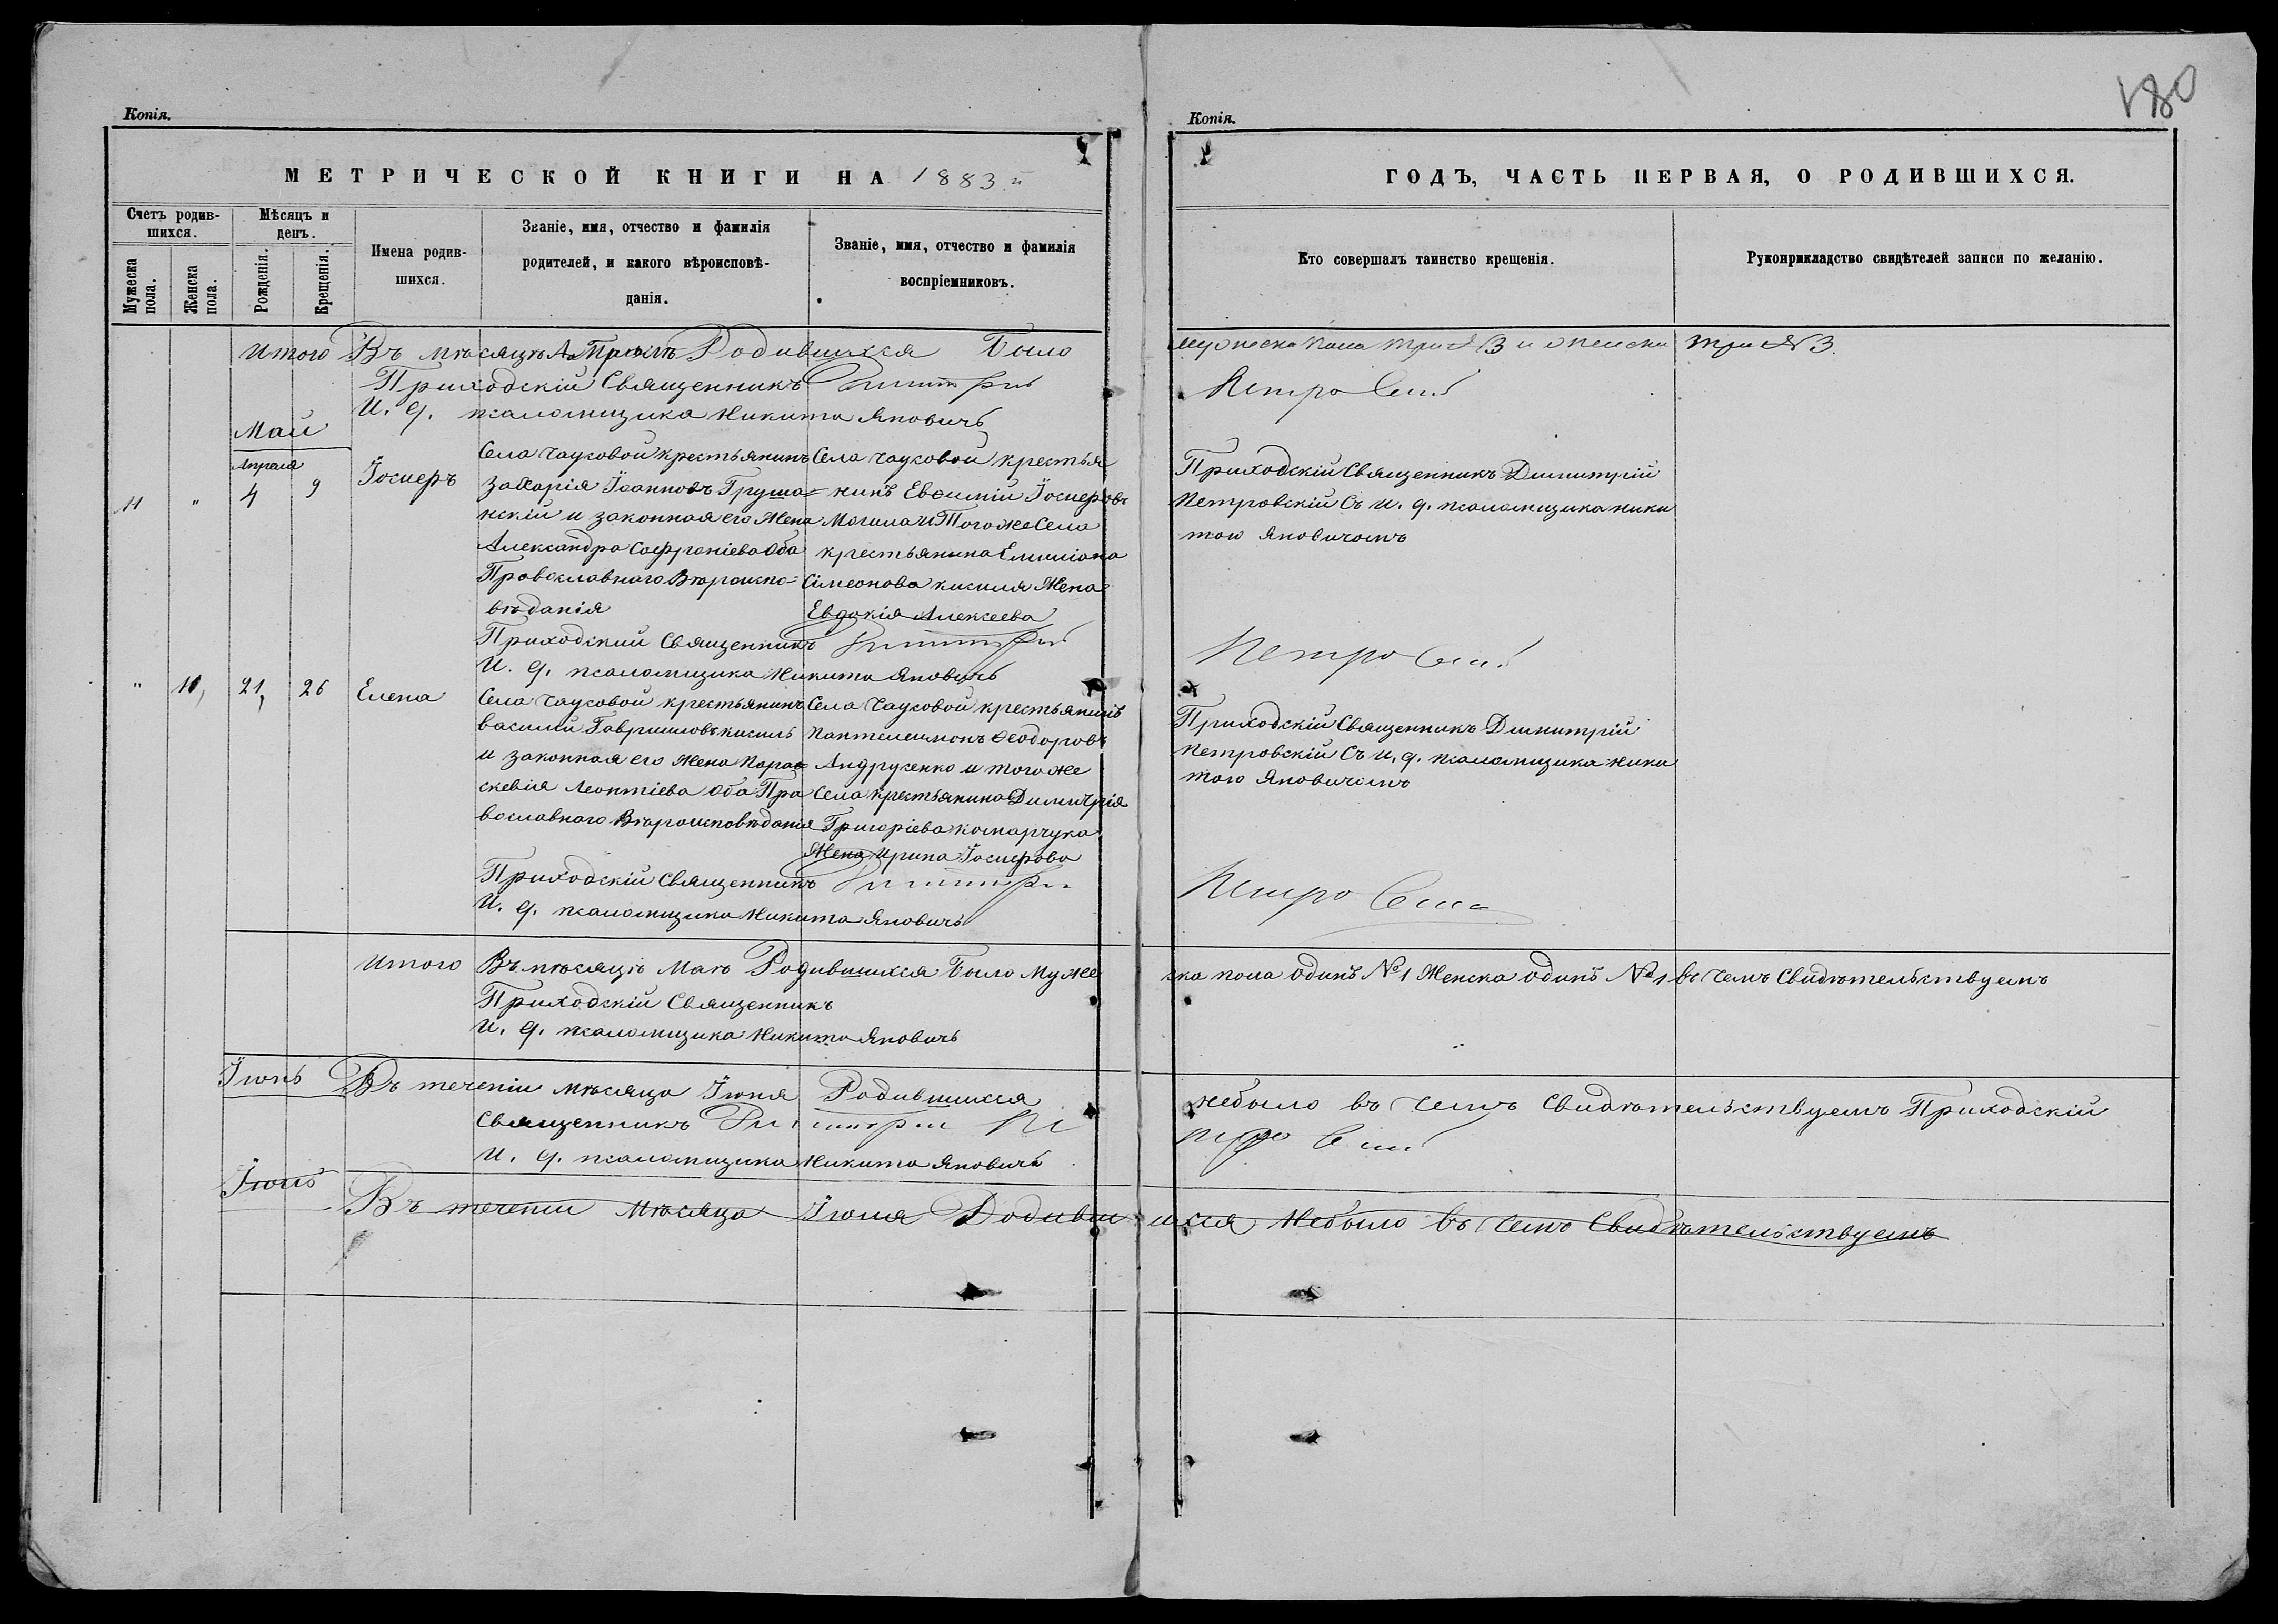 180
Копія.
Копія.
МЕТРИЧЕСКОЙ КНИГИ НА 1883 й
ГОДЪ, ЧАСТЬ ПЕРВАЯ, О РОДИВШИХСЯ.
Счетъ родив-
шихся.
Мужеска
пола.
Женска
пола.
Мѣсяцъ и
день.
Рожденія.
Крещенія.
Имена родив-
шихся.
Званіе, имя, отчество и фамилія
родителей, и какого вѣроисповѣ-
данія.
Званіе, имя, отчество и фамилія
воспріемниковъ.
Кто совершалъ таинство крещенія.
Рукоприкладство свидѣтелей записи по желанію.
Итого Въ мѣсяцѣ Апрѣлѣ Родившихся Было мужеска пола три №3 и женска три №3.
Приходскій Священникъ Димитрій Петровскій
И. д. псаломщика Никита Яновичъ
Май
Апреля
11 " 4 9 Іосифъ
Села Чаусовой крестьянинъ
Захарія Іоанновъ Груша=
нскій и законная его Жена
Александра Софроніева Оба
Православнаго Вѣроиспо=
вѣданія
Села Чаусовой крестья
нинъ Евфимій Іосифовъ
Могила и Того же Села
крестьянина Емиліана
Симеонова кисиля Жена
Евдокія Алексеева
Приходскій Священникъ Димитрій
Петровскій Съ И. д. псаломщика Ники
тою Яновичомъ
Приходский Священникъ Димитрій Петровскій
И. д. псаломщика Никита Яновичъ
" 10, 21, 26 Елена
Села Чаусовой крестьянинъ
Василій Гавриловъ кисиль
и законная его Жена Парас=
скевія Леонтіева Оба Пра
вославнаго Вѣроисповѣданія
Села Чаусовой крестьянинъ
Пантелеимонъ Феодоровъ
Андрусенко и того же
Села крестьянина Димитрія
Григоріева комарчука
Жена Ирина Іосифова
Приходскій Священникъ Димитрій
Петровскій Съ И. д. псаломщика Ники
тою Яновичомъ
Приходскій Священникъ Димитрій Петровскій
И. д. псаломщика Никита Яновичъ
Итого Въ мѣсяцѣ Маѣ Родившихся Было Муже ска пола одинъ №1 Женска одинъ №1 въ Чемъ Свидѣтельствуемъ
Приходскій Священникъ
И. д. псаломщика Никита Яновичъ
Іюнь Въ теченіи мѣсяца Іюня Родившихся небыло въ Чемъ Свидѣтельствуемъ Приходскій
Священникъ Димитрій Петровскій
И. д. псаломщика Никита Яновичъ
Іюль Въ течении Мѣсяца Іюля Родивши ихся Небыло въ Чемъ Свидѣтельствуемъ